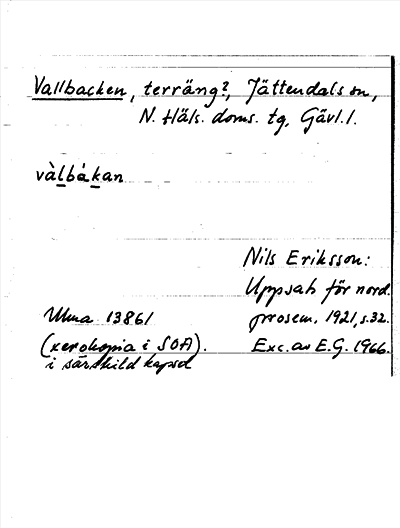 Vallbacken, terräng?, Jättendals sn,
N. Häls. doms. tg, Gävl. l.
vàlbákan
Nils Eriksson:
Uppsats för nord.
prosem. 1921, s. 32.
Exc. av E.G. 1966.
Ulma 13861
(xerokopia i SOA).
i särskild kapsel